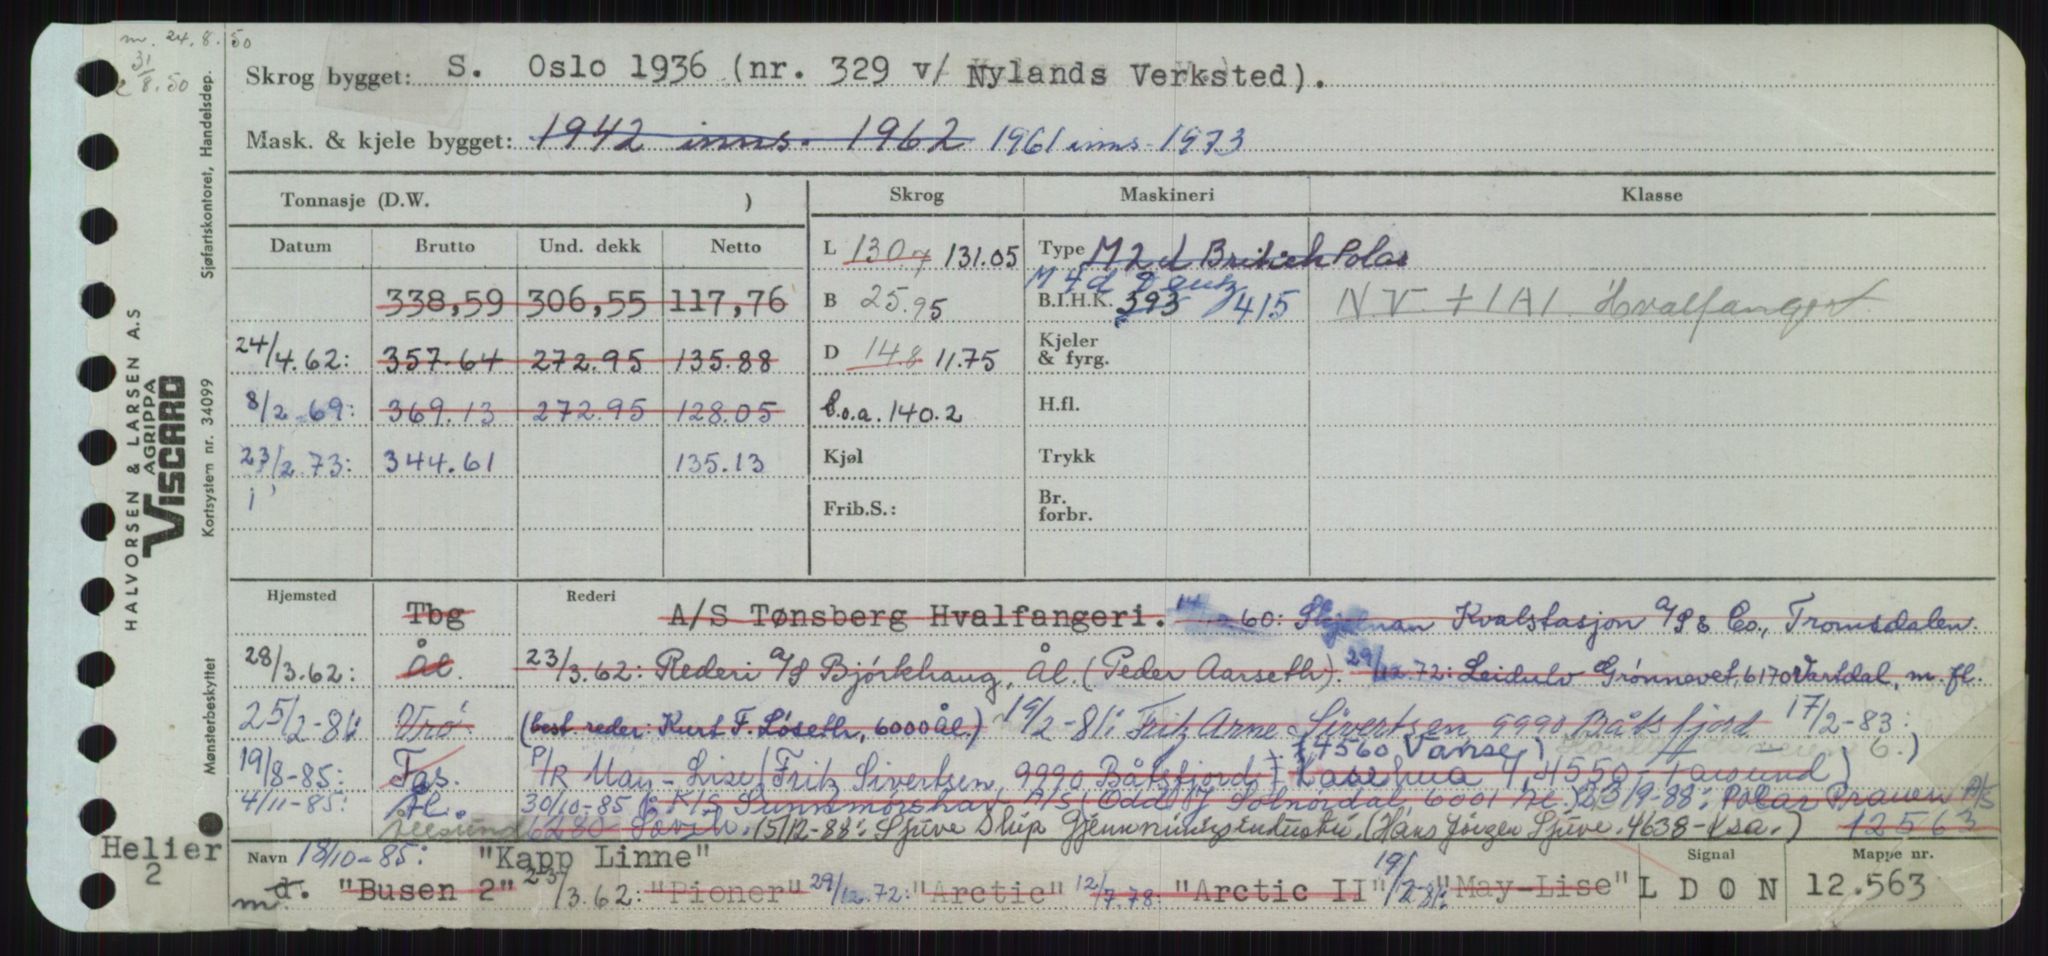 m. 24.8.50
31/8.50
Skrog bygget: S. Oslo 1936 (nr. 329 v/ Nylands Verksted).
Mask. & kjele bygget: 1942 inns. 1962 1961 inns. 1973
Tonnasje (D.W. ) Skrog Maskineri Klasse
Datum Brutto Und. dekk Netto L 130.7 131.05 Type M 2 d British Polar
M 4 d Deutz
338,59 306,55 117,76 B 25.95 B.I.H.K. 393 415 N.V. + 1A1 Hvalfangst
24/4.62: 357.64 272.95 135.88 D 14.8 11.75 Kjeler & fyrg.
8/2.69: 369.13 272.95 128.05 l.o.a. 140.2 H.fl.
23/2.73: 344.61 135.13 Kjøl Trykk
Frib.S.: Br. forbr.
Hjemsted Tbg Rederi A/S Tønsberg Hvalfangeri. 60: Kvalstasjon A/S & Co., Tromsdalen.
28/3.62: Ål. 23/3.62: Rederi A/S Bjørkhaug, Ål. (Peder Aarseth). 29/12.72: Leidulv Grønnevet, 6170 Vartdal, m.fl.
25/2-81: Vrö (best. reder: Kurt F. Løseth, 6000 Ål.) 19/2-81: Fritz Arne Sivertsen 9990 Båtsfjord 17/2-83:
4560 Vanse)
19/8-85: Fas. P/R May-Lise (Fritz Sivertsen, 9990 Båtsfjord 4550 Farsund)
4/11-85: Ål. 30/10-85: K/S Sunnmørshav A/S (Odd 6001 Ål.) 23/9-88: Polar Prawn A/S
Ålesund 6280 Søvik. 15/12-88: Sjuve Skip Gjenvinningsindustri, (Hans Jörgen Sjuve, 4638-Krsa.) 12563
Navn 18/10-85: "Kapp Linne" Signal Mappe nr.
m d. "Busen 2" 23/3.62: "Pioner" 29/12.72: "Arctic" 12/7.78: "Arctic II" 19/2-81: "May-Lise" L D O N 12.563
Helier
2
HALVORSEN & LARSEN A.S
AGRIPPA
VISCARD
Mønsterbeskyttet Kortsystem nr. 34099 Sjøfartskontoret, Handelsdep.